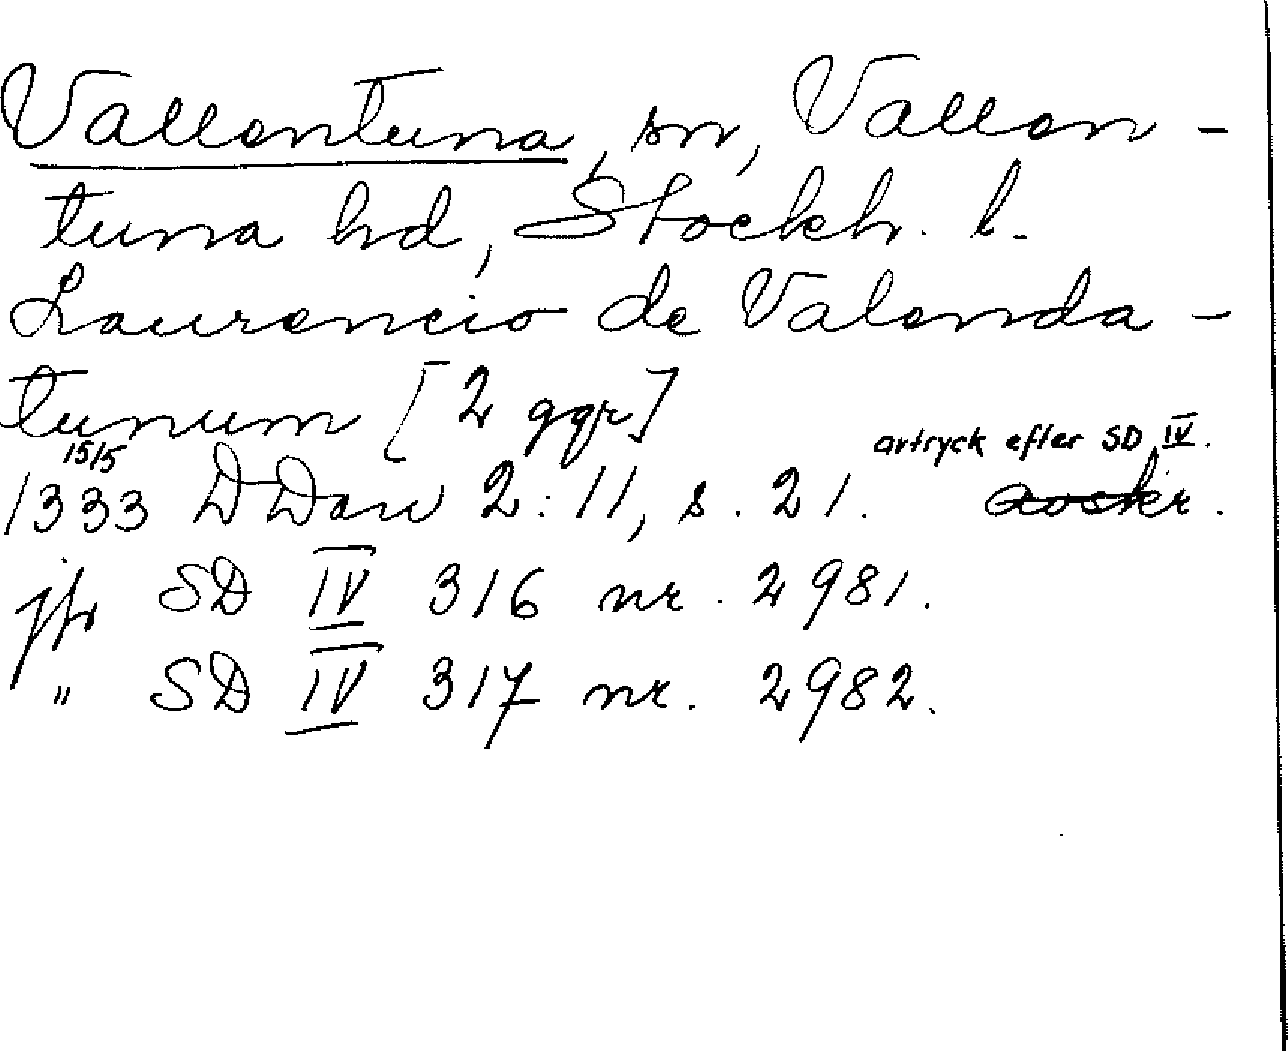 Vallentuna, sn, Vallen-
tuna hd, Stockh. l.
Laurencio de Valenda-
tunum [2 ggr]
15/5 avtryck efter SD IV.
1333 DDan 2:11, s. 21. avskr.
jfr SD IV 316 nr. 2981.
" SD IV 317 nr. 2982.